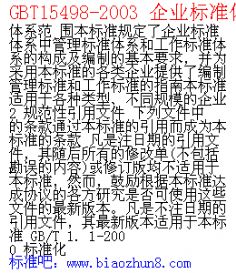 GBT15498-2003 企业标准
体系范 围本标准规定了企业标准
体系中管理标准体系和工作标准体
系的构成及编制的基本要求，并为
采用本标准的各类企业提供了编制
管理标准和工作标准的指南本标准
适用于各种类型、不同规模的企业
2 规范性引用文件 下列文件中
的条款通过本标准的引用而成为本
标准的条款 凡是注日期的引用文
件，其随后所有的修改单(不包括
勘误的内容)或修订版均不适用于
本标准，然而，鼓励根据本标准达
成协议的各方研究是否可使用这些
文件的最新版本。凡是不注日期的
引用文件，其最新版本适用于本标
准 GB/T 1. 1-200
0 标准化
标准吧：www.biaozhun8.com